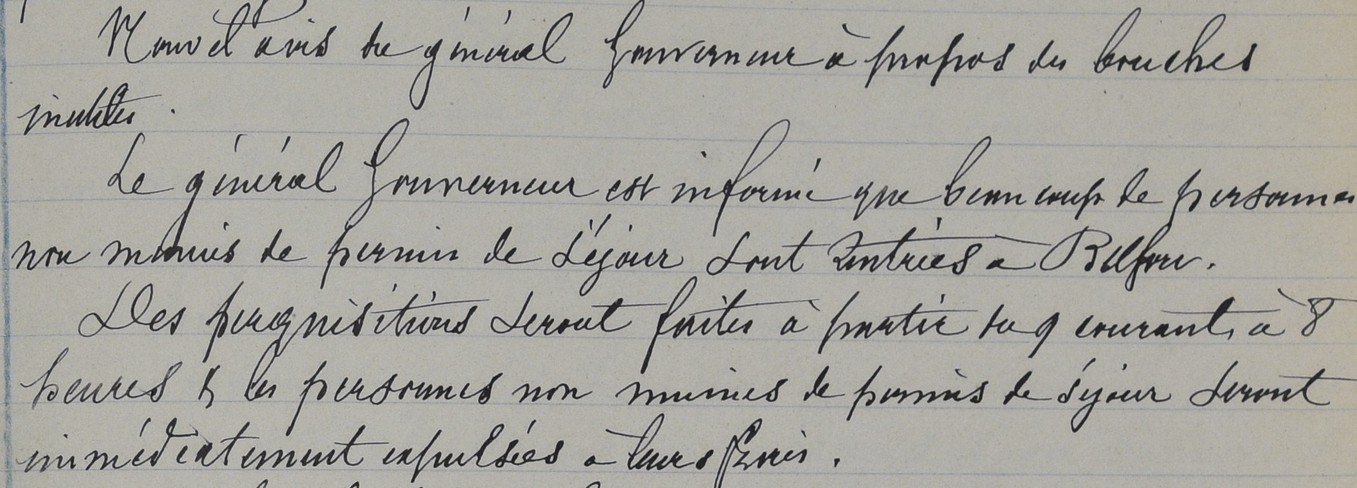 Nouvel avis du général Gouverneur à propos des bouches
inutiles.
Le général Gouverneur est informé que beaucoup de personnes
non munies de permis de séjour sont rentrées à Belfort.
Des perquisitions seront faites à partir du 9 courant, à 8
heures & les personnes non munies de permis de séjour seront
immédiatement expulsées à leurs frais.